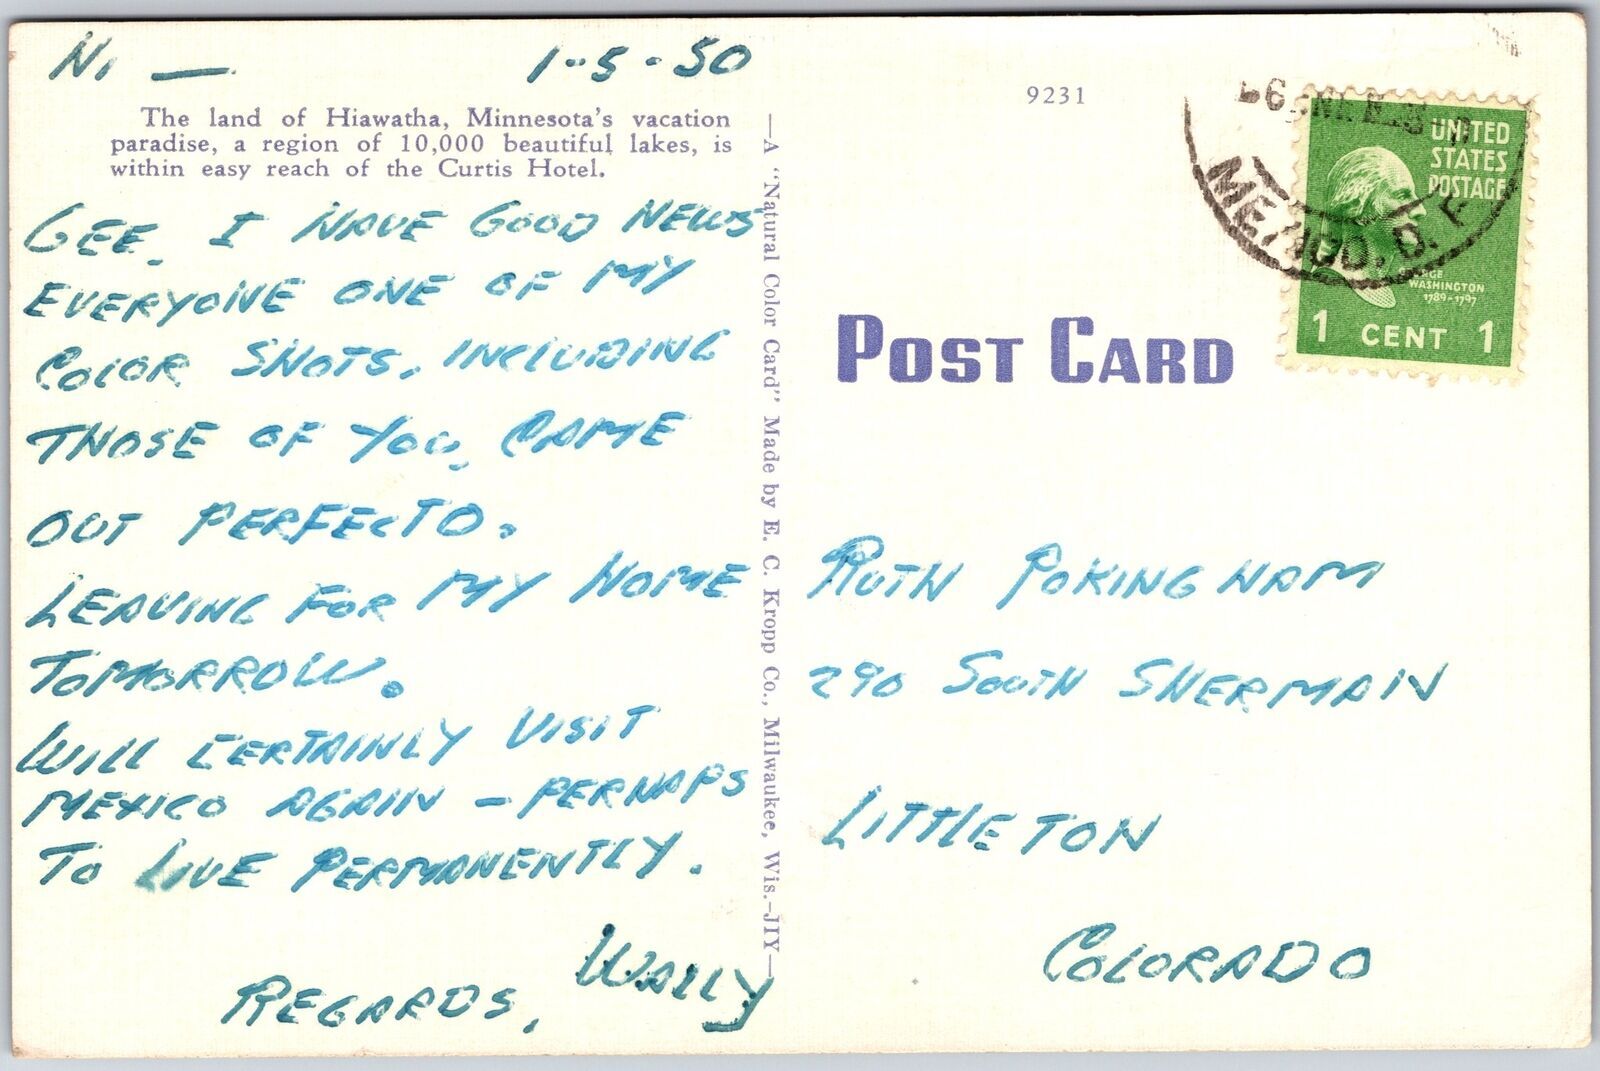 Hi — 1-5-50
The land of Hiawatha, Minnesota's vacation
paradise, a region of 10,000 beautiful lakes, is
within easy reach of the Curtis Hotel.
GEE, I HAVE GOOD NEWS
EVERYONE ONE OF MY
COLOR SHOTS, INCLUDING
THOSE OF YOU, CAME
OUT PERFECTO.
LEAVING FOR MY HOME
TOMORROW.
WILL CERTAINLY VISIT
MEXICO AGAIN — PERHAPS
TO LIVE PERMANENTLY.
REGARDS, WALLY
—A "Natural Color Card" Made by E. C. Kropp Co., Milwaukee, Wis.—JIY—
9231
MEXICO, D. F.
UNITED
STATES
POSTAGE
WASHINGTON
1789-1797
1 CENT 1
POST CARD
RUTH POKINGHAM
290 SOUTH SHERMAN
LITTLETON
COLORADO